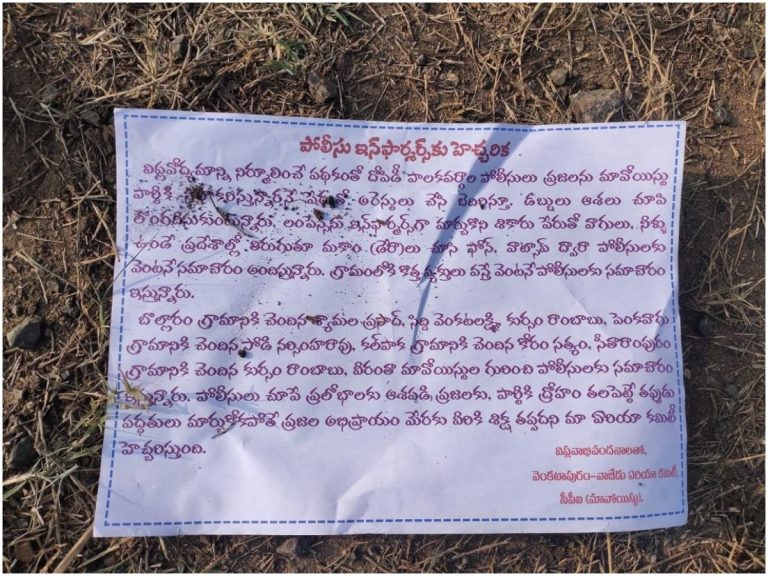 పోలీసు ఇన్‌ఫార్మర్స్‌కు హెచ్చరిక
విప్లవోద్యమాన్ని నిర్మూలించే పథకంతో దోపిడీ పాలకవర్గాల పోలీసులు ప్రజలను మావోయిస్టు
పార్టీకి అరెస్టులు చేసి బెదిరిస్తూ, డబ్బులు ఆశలు చూపి
లొంగదీసుకుంటున్నారు. లంపెన్స్‌ను ఇన్‌ఫార్మర్స్‌గా మార్చుకొని షికారు పేరుతో వాగులు, నీళ్ళు
ఉండే ప్రదేశాల్లో తిరుగుతూ మకాం (డేరా)లు చూసి ఫోన్, వాట్సాప్ ద్వారా పోలీసులకు
వెంటనే సమాచారం అందిస్తున్నారు. గ్రామంలోకి కొత్త వ్యక్తులు వస్తే వెంటనే పోలీసులకు సమాచారం
ఇస్తున్నారు.
బొల్లారం గ్రామానికి చెందిన శ్యామల ప్రసాద్, వెంకటలక్ష్మి, కుర్సం రాంబాబు, పెంకవాగు
గ్రామానికి చెందిన సోడి నర్సింహరావు, కల్‌పాక గ్రామానికి చెందిన కోరం సత్యం, సీతారాంపురం
గ్రామానికి చెందిన కుర్సం రాంబాబు, వీరంతా మావోయిస్టుల గురించి పోలీసులకు సమాచారం
ఇస్తున్నారు. పోలీసులు చూపే ప్రలోభాలకు ఆశపడి ప్రజలకు, పార్టీకి ద్రోహం తలపెట్టే తప్పుడు
పద్ధతులు మార్చుకోకపోతే ప్రజల అభిప్రాయం మేరకు వీరికి శిక్ష తప్పదని మా ఏరియా కమిటీ
హెచ్చరిస్తుంది.
విప్లవాభివందనాలతో,
వెంకటాపురం-వాజేడు ఏరియా కమిటీ,
సీపీఐ (మావోయిస్టు).